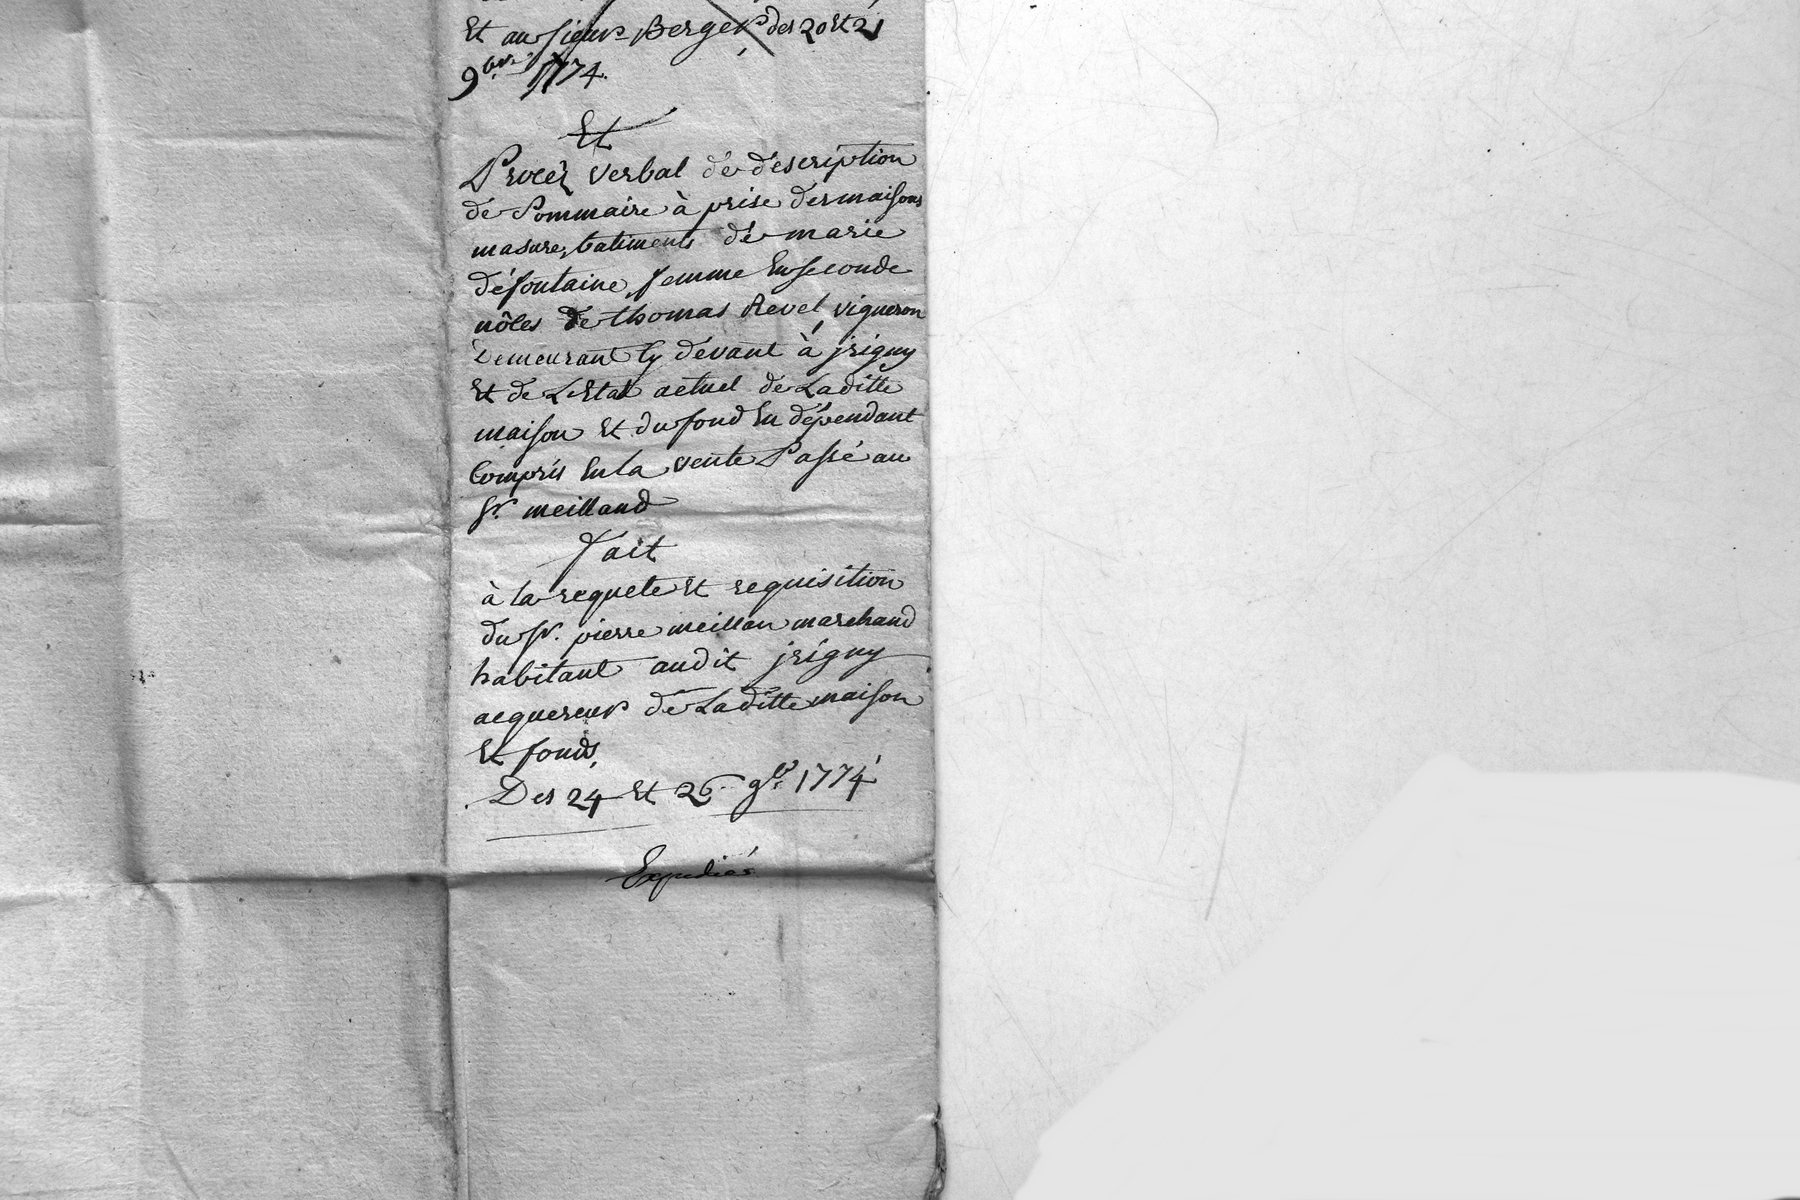 Et au sieur Berger des 20 et 21
9bre 1774.
Et
Procèz verbal de description
de Sommaire à prise des maisons
masure, batiments de marie
défontaine, femme En seconde
nôces de thomas Revel, vigneron
demeurant Cy dévant à jrigny
Et de L'Etat actuel de Laditte
maison Et du fond En dépendant
Compris En la vente Passé au
Sr. meilland
fait
à la requete Et requisition
du Sr. pierre meillan marchand
habitant audit jrigny
acquereur de Laditte maison
Et fonds,
Des 24 Et 26 9bre 1774
Expediés